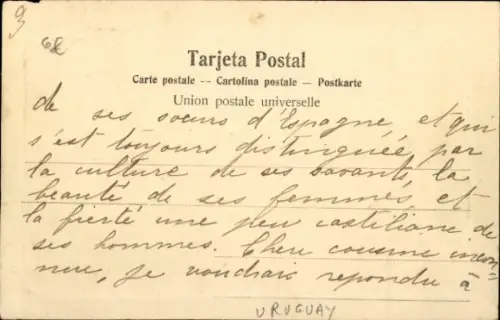 9
68
Tarjeta Postal
Carte postale -- Cartolina postale -- Postkarte
Union postale universelle
de ses soeurs d'Espagne et qui
s'est toujours distinguée par
la culture de ses savants, la
beauté de ses femmes, et
la fierté une peu castiliane de
ses hommes. Chere cousine incon-
nue, je voudrais repondre à
URUGUAY